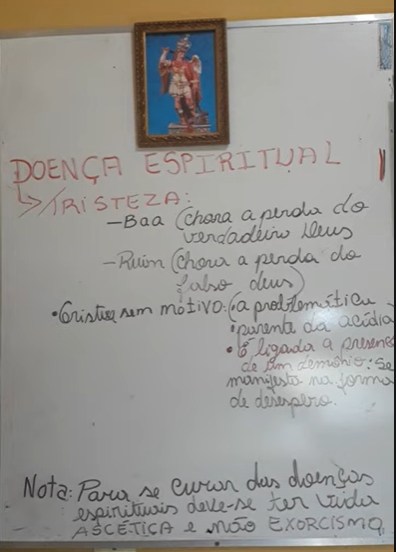 DOENÇA ESPIRITUAL
↳ TRISTEZA:
- Boa (chora a perda do
verdadeiro Deus
- Ruim (chora a perda do
falso deus)
• Tristeza sem motivo: (a problemática
• parente da acídia
• É ligada a presenç
de um demônio: Se
manifesta na forma
de desespero.
Nota: Para se curar das doenças
espirituais deve-se ter vida
ASCÉTICA e não EXORCISMO